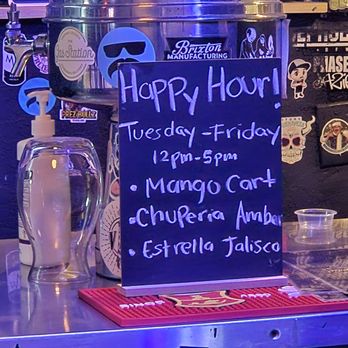 Ice Station
Brixton
MANUFACTURING
PREZ BULLZ
Happy Hour!
Tuesday-Friday
12pm-5pm
• Mango Cart
• Chuperia Amber
• Estrella Jalisco